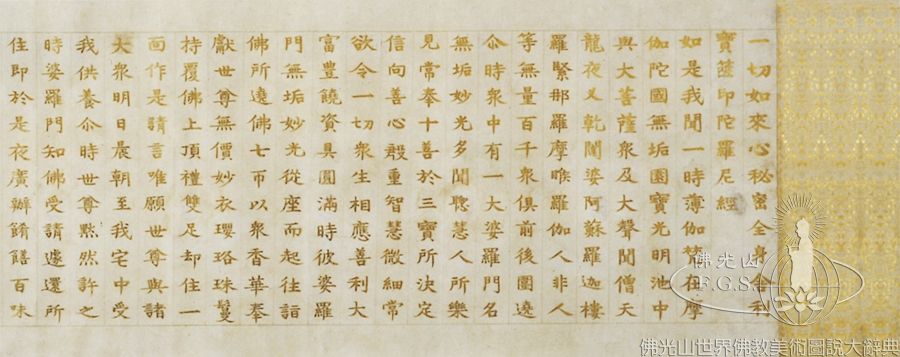 一切如來心秘密全身舍利
寶篋印陀羅尼經
如是我聞一時薄伽梵在摩
伽陀國無垢園寶光明池中
與大菩薩衆及大聲聞僧天
龍夜叉乾闥婆阿蘇羅迦樓
羅緊那羅摩睺羅伽人非人
等無量百千衆俱前後圍遶
尒時衆中有一大婆羅門名
無垢妙光多聞聰慧人所樂
見常奉十善於三寶所決定
信向善心殷重智慧微細常
欲令一切衆生相應善利大
富豐饒資具圓滿時彼婆羅
門無垢妙光從座而起往詣
佛所遶佛七帀以衆香華奉
獻世尊無價妙衣瓔珞珠鬘
持覆佛上頂禮雙足却住一
面作是請言唯願世尊與諸
大衆明日晨朝至我宅中受
我供養尒時世尊黙然許之
時婆羅門知佛受請遽還所
住即於是夜廣辦餚饍百味
佛光山
F.G.S.
佛光山世界佛教美術圖說大辭典